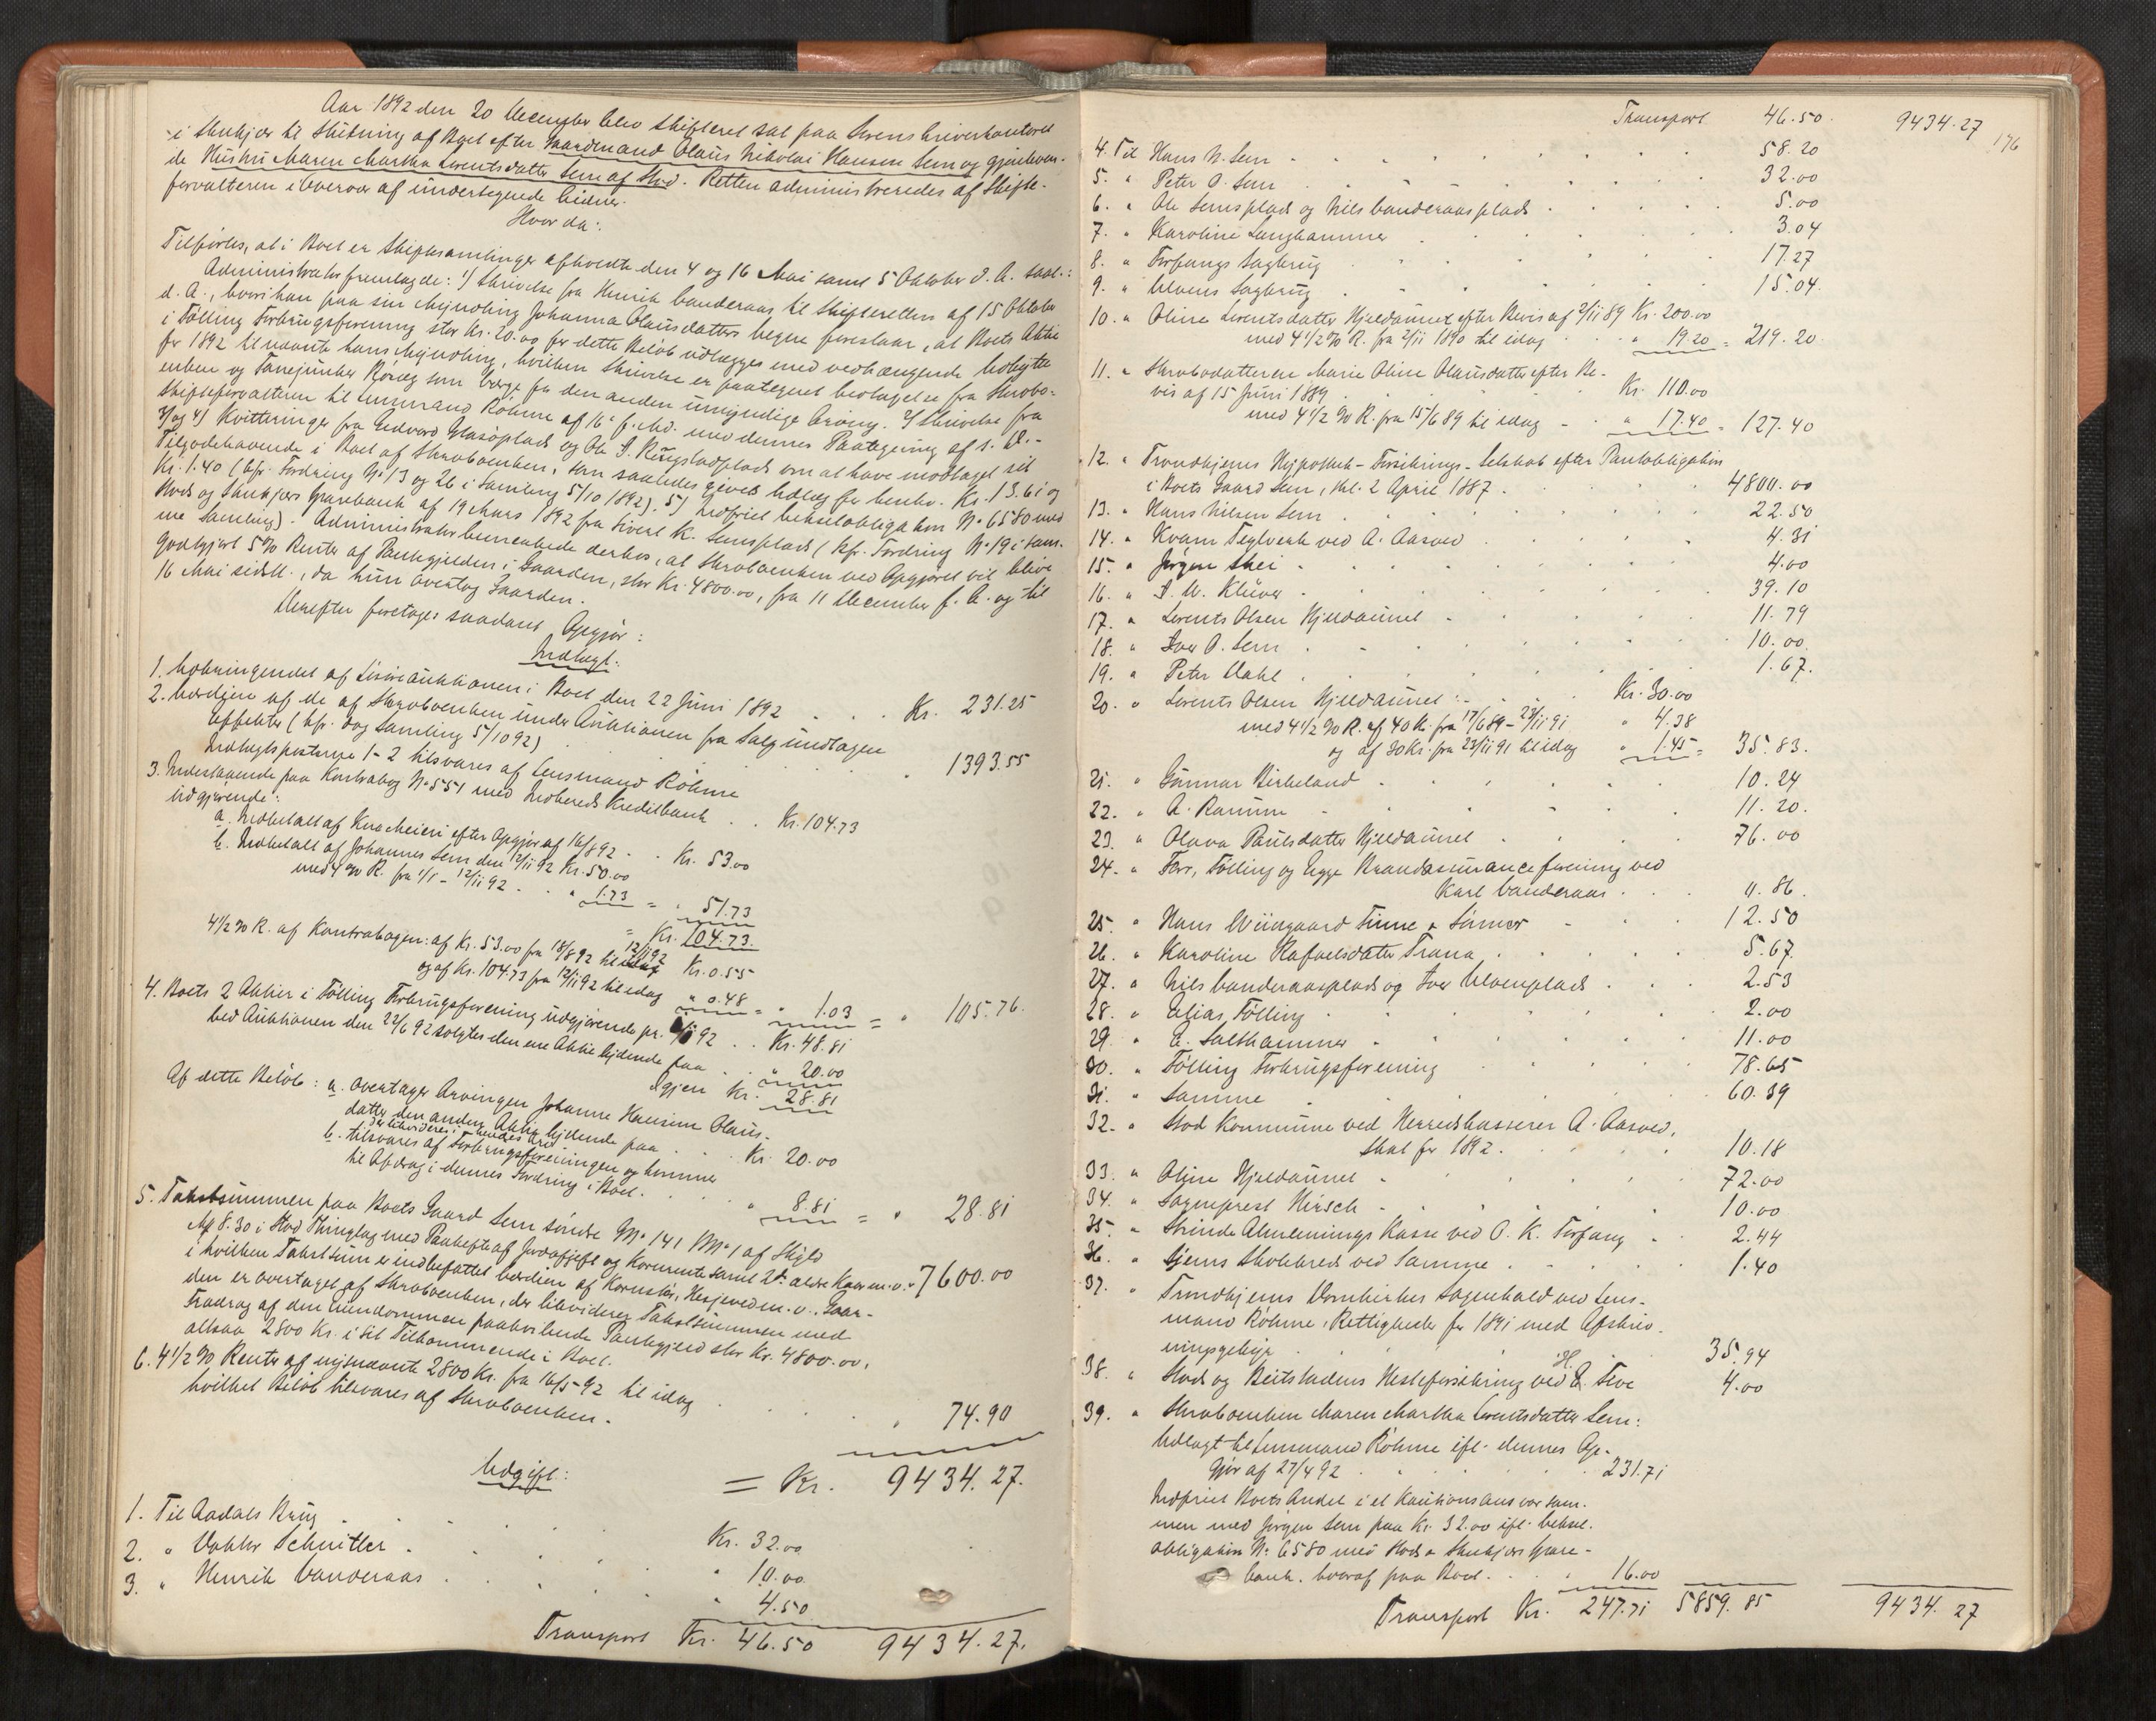 Aar 1892 den 20 December blev Skifteret sat paa Sorenskriverkontoret
i Stenkjær til Slutning af Boet efter Gaardmand Olaus Nikolai Hansen Sem og gjenleven-
de Hustru Maren Martha Lorentsdatter Sem af Stod. Retten administreredes af Skifte-
forvalteren i Overvær af undertegnede Vidner.
Hvorda:
Tilførtes, at i Boet er Skiftesamlinger afholdte den 4 og 16 Mai samt 5 Oktober d. A.
Administrator fremlagde: 1) Skrivelse fra Henrik Vanderaas til Skifteretten af 15 Oktober
d. A., hvori han paa sin Myndling Johanna Olausdatters Vegne foreslaar, at Boets Aktie
i Følling Forbrugsforening stor Kr. 20.00 for dette Beløb udlægges med vedhængende Udbytte
for 1892 til nævnte hans Myndling, hvilken Skrivelse er paategnet Vedtagelse fra Skrøbo-
enken og Tømmermand som Værge for den anden umyndige Arving. 2) Skrivelse fra
Skifteforvalteren til Lensmand Röhme af 16 f. Md. med dennes Paategning af s. D. -
3) og 4) Kvitteringer fra Edvard Glasöplads og Ole I. Ringstadplads om at have modtaget sit
Tilgodehavende i Boet af Skrøboenken, som saaledes gives Udlæg for benhv. Kr. 13.61 og
Kr. 1.40 (kfr. Fordring N. 13 og 26 i Samling 5/10 1892). 5) Indfriet Vekselobligation N. 6580 med
Stods og Stenkjærs Sparebank af 19 Mars 1892 fra Sivert K. Semsplads (kfr. Fordring N. 19 i sam-
me Samling). Administrator bemærkede derhos, at Skrøboenken ved Opgjøret vil blive
godtgjort 5% Renter af Pantegjelden i Gaarden, stor Kr. 4800.00, fra 11 December f. A. og til
16 Mai sidstl., da hun overtog Gaarden.
Derefter foretages saadant Opgjør:
Indtægt:
1. Udbringendet af Løsøreauktionen i Boet den 22 Juni 1892 . . . Kr. 231.25
2. Værdien af de af Skrøboenken under Auktionen fra Salg undtagne
Effekter (kfr. dog Samling 5/10 92) . . . " 1393.55
Indtægtsposterne 1-2 tilsvares af Lensmand Röhme
3. Indestaaende paa Kontrabog N. 551 med Indherreds Kreditbank . . Kr. 104.73
udgjørende:
a. Indbetalt af Kvam Meieri efter Opgjør af 16/8 92 . . Kr. 53.00
b. Indbetalt af Johannes Sem den 12/11 92 Kr. 50.00
med 4 % R. fra 1/1 - 12/11 92 . . " 1.73 = " 51.73
= Kr. 104.73
4 1/2 % R. af Kontrabogen: af Kr. 53.00 fra 18/8 92 til 12/11 92 Kr. 0.55
og af Kr. 104.73 fra 12/11 92 til idag " 0.48 = " 1.03 = " 105.76.
4. Boets 2 Aktier i Følling Forbrugsforening udgjørende pr. 92 . . Kr. 48.81
Ved Auktionen den 22/6 92 solgtes den ene Aktie lydende paa . . " 20.00
igjen Kr. 28.81
Af dette Beløb: a. overtager Arvingen Johanne Hansine Olaus-
datter den anden Aktie lydende paa . . . Kr. 20.00
der likvideres i hendes Arv
b. tilsvares af Forbrugsforeningen og kommer
til Afdrag i dennes Fordring i Boet. . . " 8.81 = " 28.81
5. Takstsummen paa Boets Gaard Sem søndre G.N. 141 B.N. 1 af Skyld
Mk 8.30 i Stod Thinglag med Paahefte af Jordafgift og Kornrente samt 2de ældre Kaar m. v. " 7600.00
i hvilken Takstsum er indbefattet Værdien af Kornstør, Hesjeved m. v. Gaar-
den er overtaget af Skrøboenken, der likviderer Takstsummen med
Fradrag af den Eiendommen paahvilende Pantegjeld stor Kr. 4800.00,
altsaa 2800 Kr. i sit Tilkommende i Boet.
6. 4 1/2 % Renter af nysnævnte 2800 Kr. fra 16/5 92 til idag
hvilket Beløb tilsvares af Skrøboenken. . . . " 74.90
= Kr. 9434.27.
Udgift:
1. Til Aadals Brug . . . Kr. 32.00
2. " Doktor Schnitler . . . " 10.00
3. " Henrik Vanderaas . . . " 4.50
Transport Kr. 46.50 9434.27.
176
Transport 46.50. 9434.27
4. Til Hans N. Sem . . . 58.20
5. " Peter O. Sem . . . 32.00
6. " Ole Semsplads og Nils Vanderaasplads . . . 5.00
7. " Karoline Langhammer . . . 3.04
8. " Forfangs Sagbrug . . . 17.27
9. " Ulvens Sagbrug . . . 15.04
10. " Oline Lorentsdatter Hjeldaunet efter Bevis af 2/11 89 Kr. 200.00
med 4 1/2 % R. fra 2/11 1890 til idag . . " 19.20 = 219.20
11. " Skrøbodatteren Marie Oline Olausdatter efter Be-
vis af 15 Juni 1889 . . . Kr. 110.00
med 4 1/2 % R. fra 15/6 89 til idag - . " 17.40 = 127.40
12. " Trondhjems Hypothek-Forsikrings-Selskab efter Pantobligation
i Boets Gaard Sem, thl. 2 April 1887 . . . 4800.00
13. " Hans Nilsen Sem . . . 22.50
14. " Kvam Teglverk ved A. Aasved . . . 4.31
15. " Jørgen Skei . . . 4.00
16. " I. W. Klüver . . . 39.10
17. " Lorents Olsen Hjeldaunet . . . 11.79
18. " Iver O. Sem . . . 10.00.
19. " Peter Dahl . . . 1.67.
20. " Lorents Olsen Hjelldaunet: . . . Kr. 30.00
med 4 1/2 % R. af 40 K. fra 17/6 89 - 23/11 91 " 4.38
og af 30 Kr. fra 23/11 91 til idag " 1.45 = 35.83.
21. " Gunnar Birkeland . . . 10.24
22. " A. Ramme . . . 11.20.
23. " Olava Paulsdatter Hjeldaunet . . . 76.00
24. " For, Følling og Egge Brandassuranceforening ved
Karl Vanderaas . . . 11.86.
25. " Hans Wiingaard Finne & Sønner . . . 12.50
26. " Karoline Rafaelsdatter Trana . . . 5.67.
27. " Nils Vanderaasplads og Iver Ulvenplads . . . 2.53
28. " Elias Følling . . . 2.00
29. " E. Salthammer . . . 11.00
30. " Følling Forbrugsforening . . . 78.65
31. " Samme . . . 60.39
32. " Stod Kommune ved Herredskasserer A. Aasved,
Skat for 1892. . . . 10.18
33. " Oline Hjeldaunet . . . 72.00
34. " Sogneprest Hirsch . . . 10.00
35. " Strinde Almennings Kasse ved O. K. Forfang . . 2.44
36. " Hjems Skolekreds ved Samme . . . 1.40
37. " Trondhjems Domkirkes Sognekald ved Lens-
mand Röhme, Rettigheder for 1891 med Afskriv-
ningsgebyr . . . 35.94
38. " Stods og Beitstadens Hesteforsikring ved H. Five 4.00
39. " Skrøboenken Maren Martha Lorentsdatter Sem:
Udlagt til Lensmand Röhme ifl. dennes Op-
gjør af 27/4 92 . . . 231.71
Indfriet Boets Andel i et Kautionsansvar sam-
men med Jørgen Sem paa Kr. 32.00 ifl. Veksel-
obligation N. 6580 med Stods & Stenkjærs Spare-
bank, hvoraf paa Boet. . . " 16.00
Transport Kr. 247.71 5859.85 9434.27